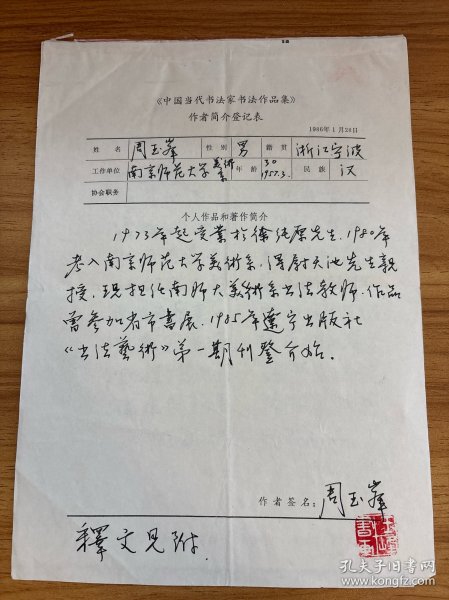 《中国当代书法家书法作品集》
作者简介登记表
1986年1月28日
姓名 周玉峯 性别 男 籍贯 浙江宁波
工作单位 南京师范大学美術系 年龄 30 1957.3. 民族 汉
协会职务
个人作品和著作简介
1973年起受業於徐纯原先生.1980年
考入南京师范大学美術系.得尉天池先生親
授.现担任南师大美術系书法教师.作品
曾参加省市書展.1985年遼宁出版社
《书法藝術》第一期刊登介绍.
作者签名: 周玉峯
釋文見附.
孔夫子旧书网
www.kongfz.com